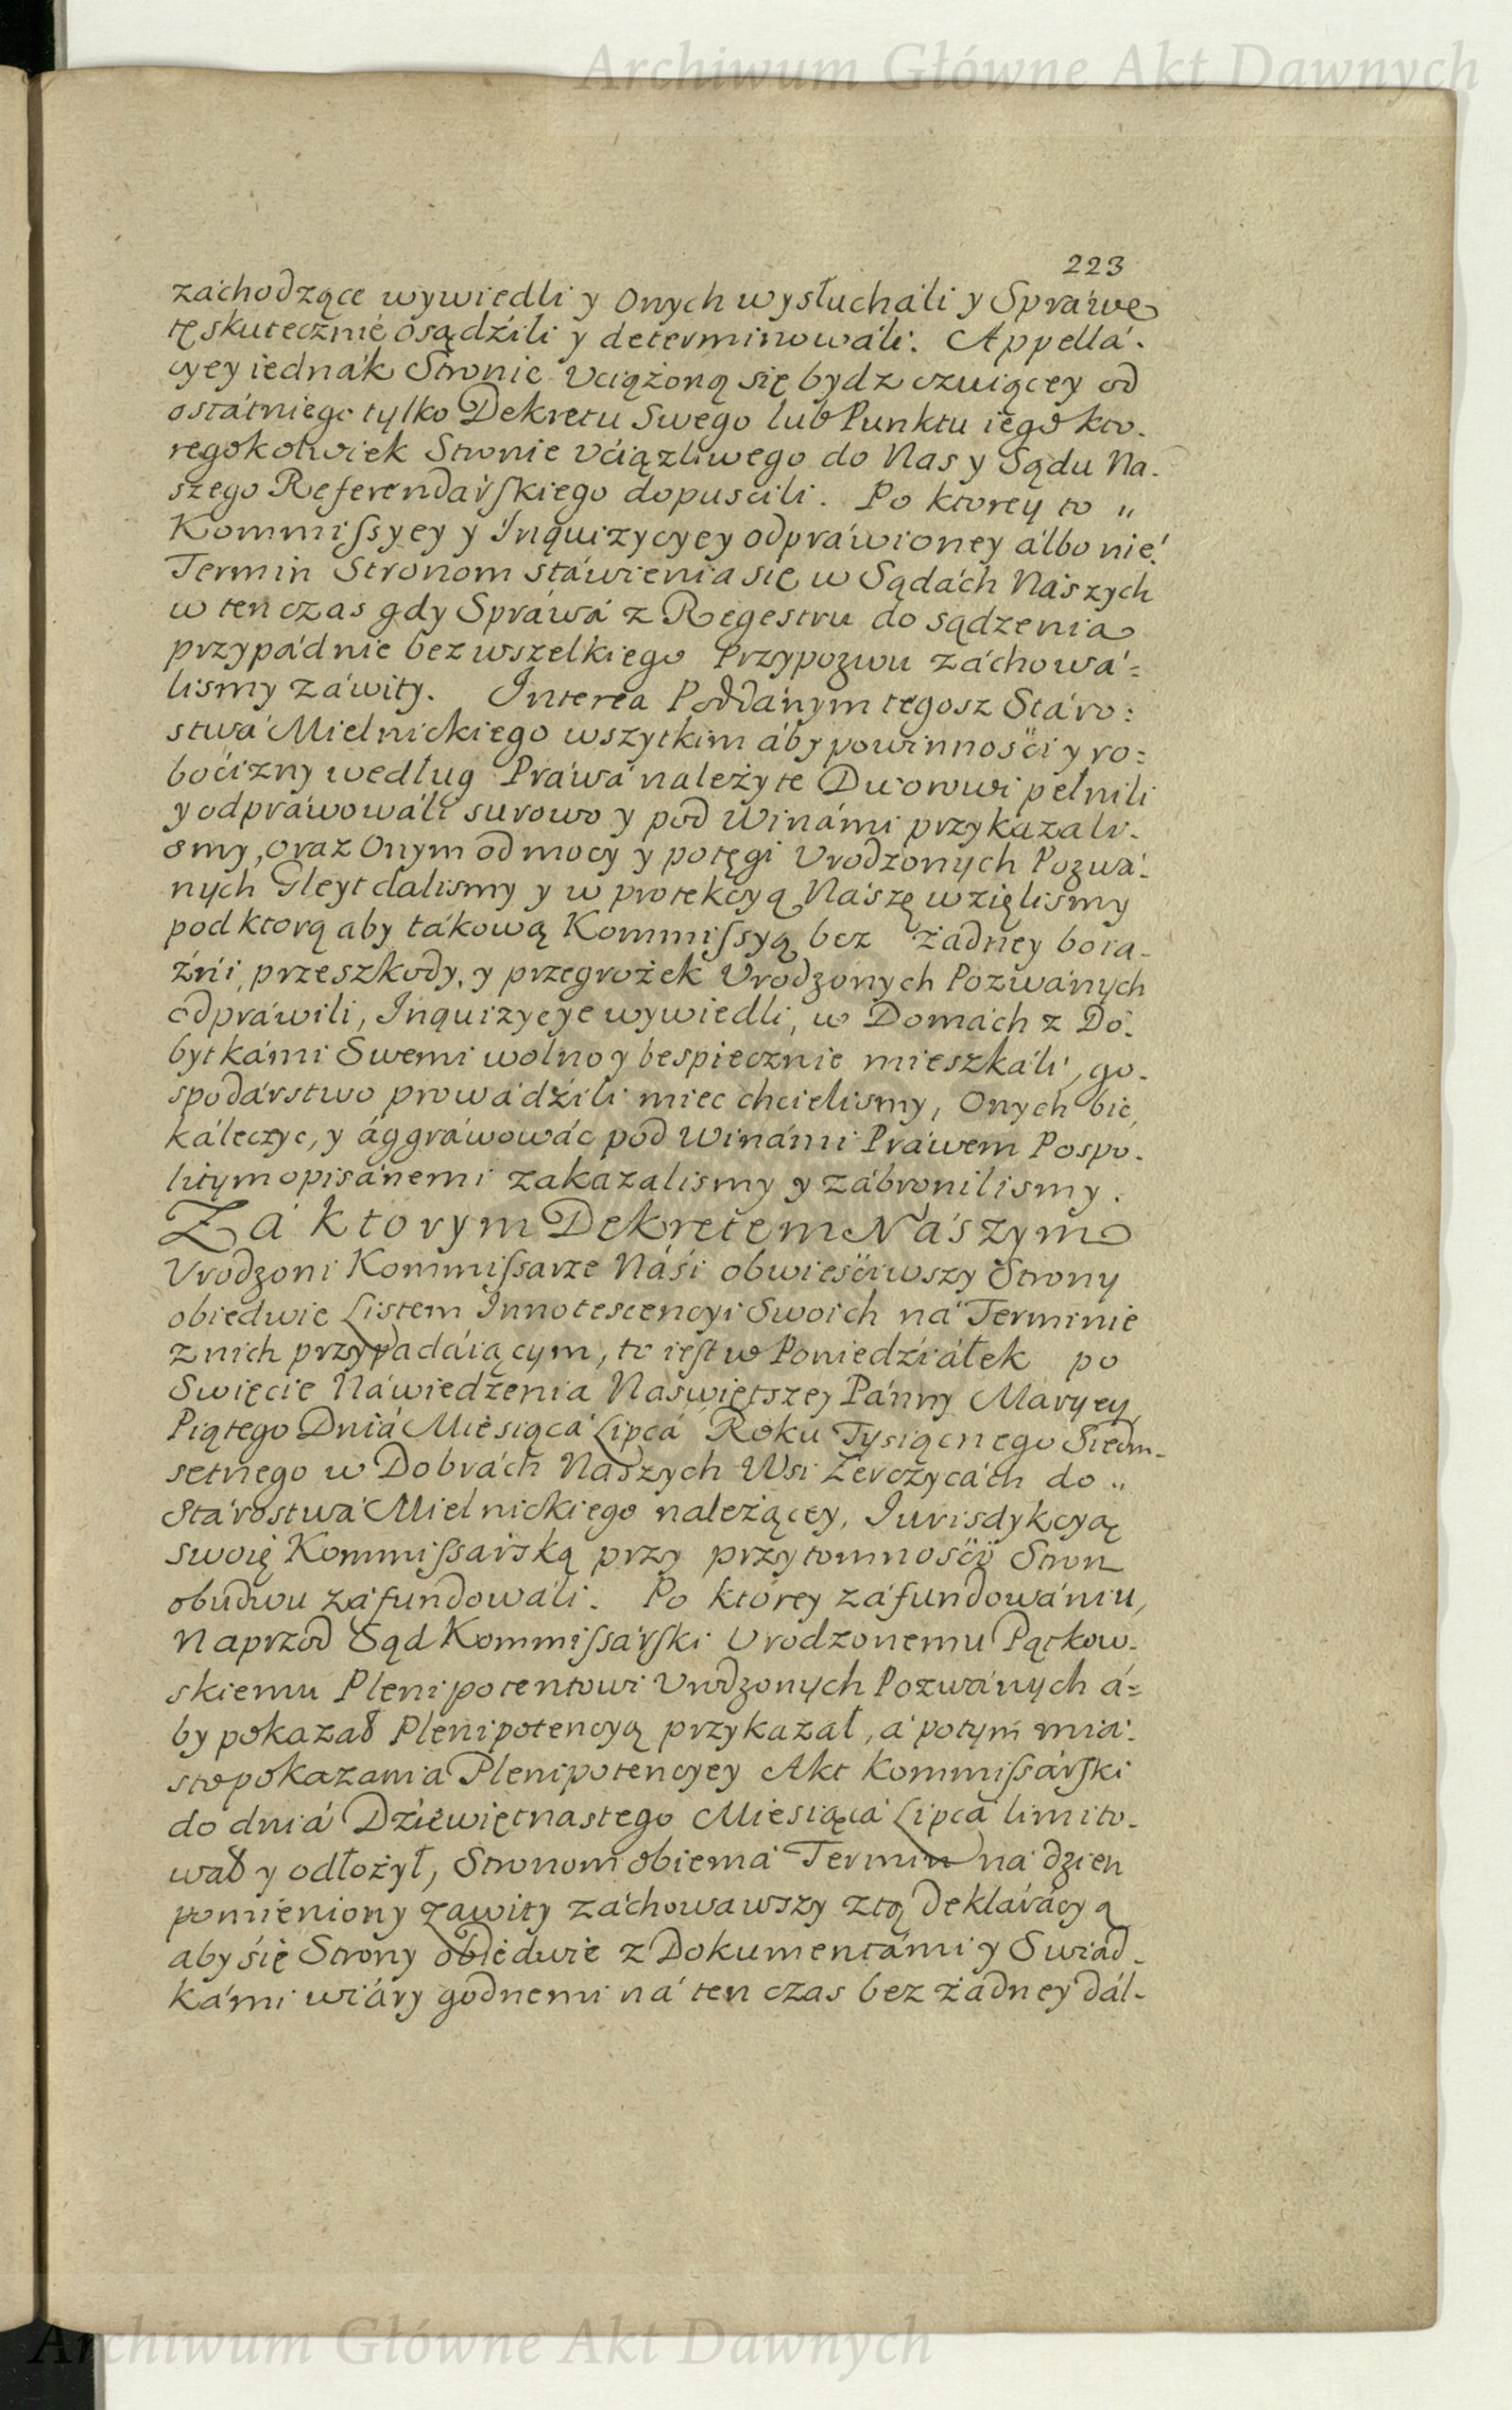 Archiwum Główne Akt Dawnych
223
záchodzące wywiedli y Onych wysłucháli y Spráwę
tę skutecznie osądźili y determinowáli. Appellá-
cyey iednák Stronie Vciążoną się bydz czuiącey od
ostátniego tylko Dekretu Swego lub Punktu iego kto-
regokolwiek Stronie Vciązliwego do Nas y Sądu Na-
szego Referendárſkiego dopuscili. Po ktorey to „
Kommiſsyey y Inquizycyey odpráwioney álbo nie
Termin Stronom stáwienia się w Sądách Nászych
w ten czas gdy Spráwá z Regestru do sądzenia
przypádnie bez wszelkiego Przypozwu záchowá=
lismy záwity. Interea Poddánym tegosz Stáro:
stwá Mielnickiego wszytkim áby powinnośći y ro=
boćizny według Práwá należyte Dworowi pełnili
y odpráwowáli surowo y pod Winámi przykázali-
smy, oraz Onym od mocy y potęgi Vrodzonych Pozwá-
nych Gleyt dalismy y w protekcyą Nászę wzięlismy
pod ktorą aby tákową Kommiſsyą bez żadney boia-
źni, przeszkody, y przegrożek Vrodzonych Pozwánych
odpráwili, Inquizycye wywiedli, w Domách z Do-
bytkámi Swemi wolno y bespiecznie mieszkáli, go-
spodárstwo prowádźili miec chcielismy, Onych bic,
káleczyc, y ággráwowác pod Winámi Práwem Pospo-
litym opisánemi zakázalismy y zábronilismy.
Zá ktorym Dekretem Nászym
Vrodzoni Kommiſsarze Náśi obwieśćiwszy Strony
obiedwie Listem Innotescencyi Swoich ná Terminie
z nich przypadáiącym, to ieſt w Poniedźiáłek po
Swięcie Náwiedzenia Naswiętszey Pánny Maryey
Piątego Dniá Miesiącá Lipcá Roku Tysiącnego Siedm-
setnego w Dobrách Nászych Wsi Zerczycách do „
Stárostwá Mielnickiego należącey, Iurisdykcyą
swoię Kommiſsárską przy przytomnośći Stron
obudwu záfundowáli. Po ktorey záfundowániu,
Naprzod Sąd Kommiſsárſki Vrodzonemu Pątkow-
skiemu Plenipotentowi Vrodzonych Pozwánych á=
by pokazał Plenipotencyą przykazał, á potym miá-
sto pokazania Plenipotencyey Akt Kommiſsárſki
do dniá Dźiewiętnastego Miesiącá Lipcá limito-
wał y odłożył, Stronom obiema Termin ná dzien
pomieniony zawity záchowawszy z tą deklárácyą
aby się Strony obiedwie z Dokumentámi y Swiad-
kámi wiáry godnemi ná ten czas bez żadney dál-
Archiwum Główne Akt Dawnych